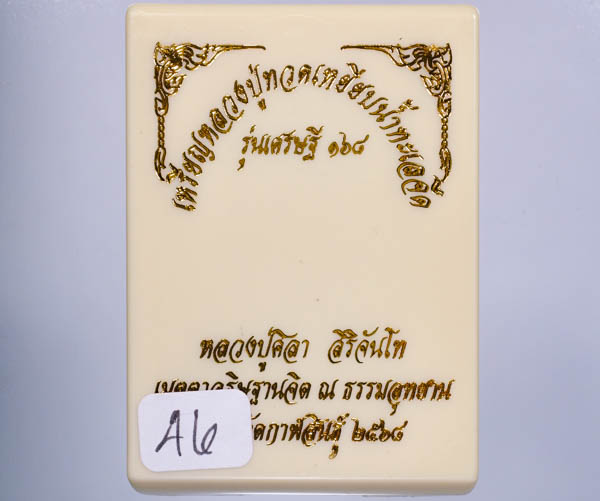 เหรียญหลวงปู่ทวดเหยียบน้ำทะเลจืด
รุ่นเศรษฐี ๑๖๘
หลวงปู่ศิลา สิริจันโท
เมตตาอธิษฐานจิต ณ ธรรมอุทยาน
กาฬสินธุ์ ๒๕๖๘
A6